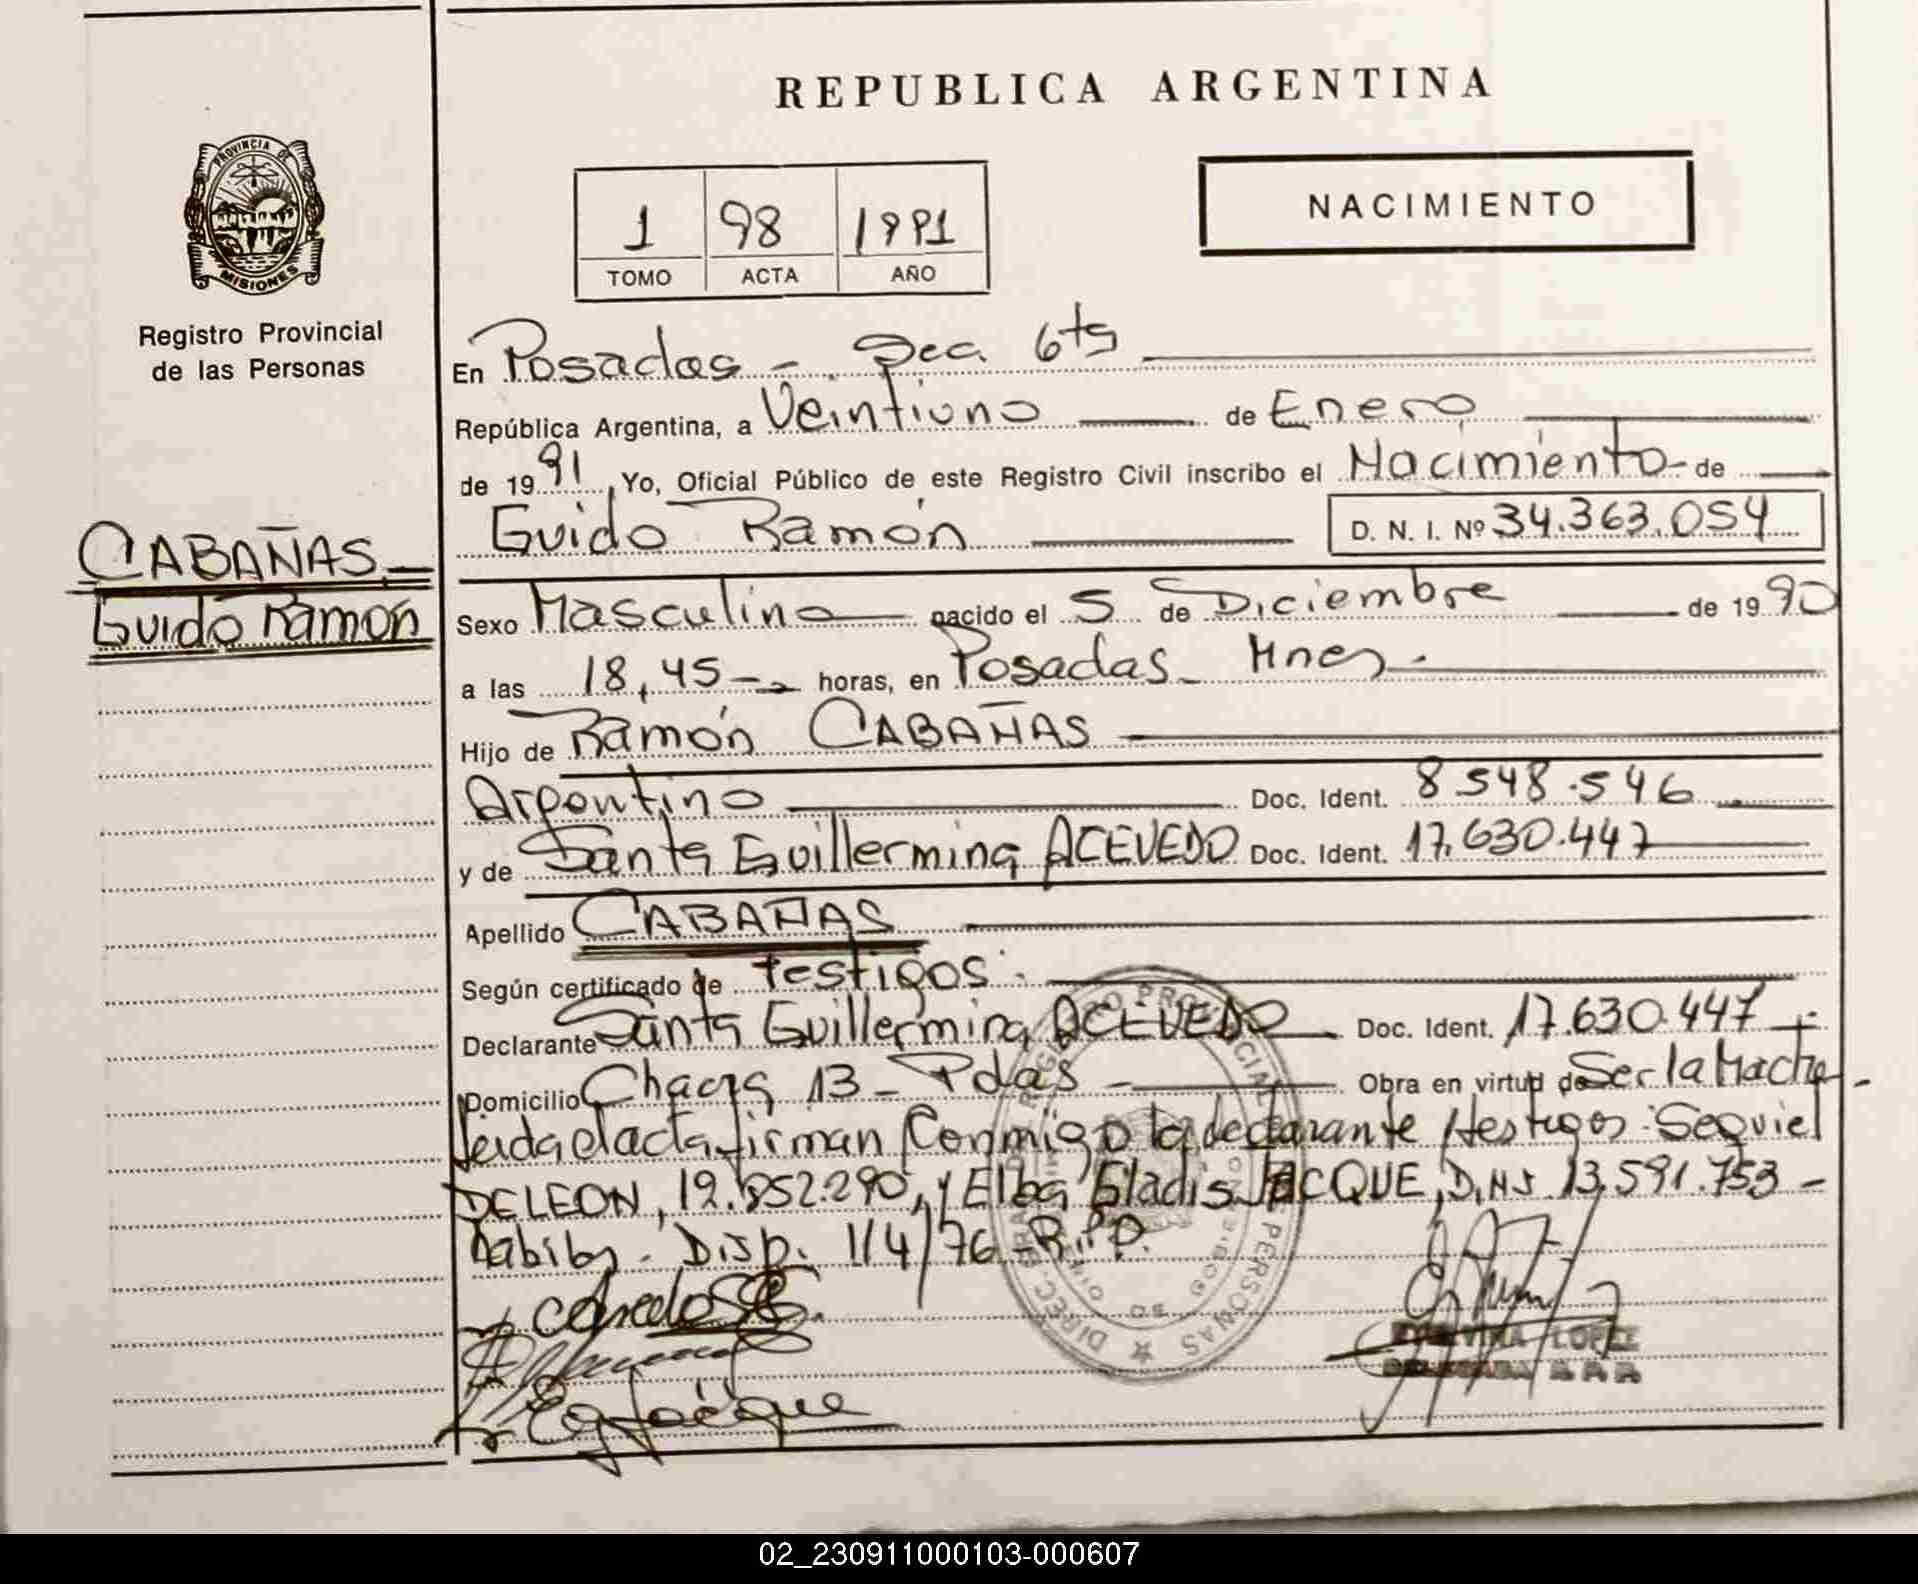 REPUBLICA ARGENTINA
PROVINCIA DE
MISIONES
Registro Provincial
de las Personas
1 98 1991
TOMO ACTA AÑO
NACIMIENTO
CABAÑAS
Guido Ramón
En Posadas - Sec. 6ta
República Argentina, a Veintiuno de Enero
de 1991, Yo, Oficial Público de este Registro Civil inscribo el Nacimiento de
Guido Ramón D. N. I. Nº 34.363.054
Sexo Masculino nacido el 5 de Diciembre de 1990
a las 18,45 horas, en Posadas - Mnes.
Hijo de Ramón CABAÑAS
Argentino Doc. Ident. 8.548.546
y de Santa Guillermina ACEVEDO Doc. Ident. 17.630.447
Apellido CABAÑAS
Según certificado de testigos.
Declarante Santa Guillermina ACEVEDO Doc. Ident. 17.630.447
Domicilio Chacra 13 - Pdas - Obra en virtud de Ser la Madre -
leida el acta firman Conmigo la declarante y testigos: Sequiel
DE LEON, 12.852.290, y Elba Gladis JACQUE, D.N.I. 13.591.753 -
habiles - Disp. 114/76 - R.P.P.
REGISTRO PROVINCIAL DE PERSONAS
LOPEZ
02_230911000103-000607